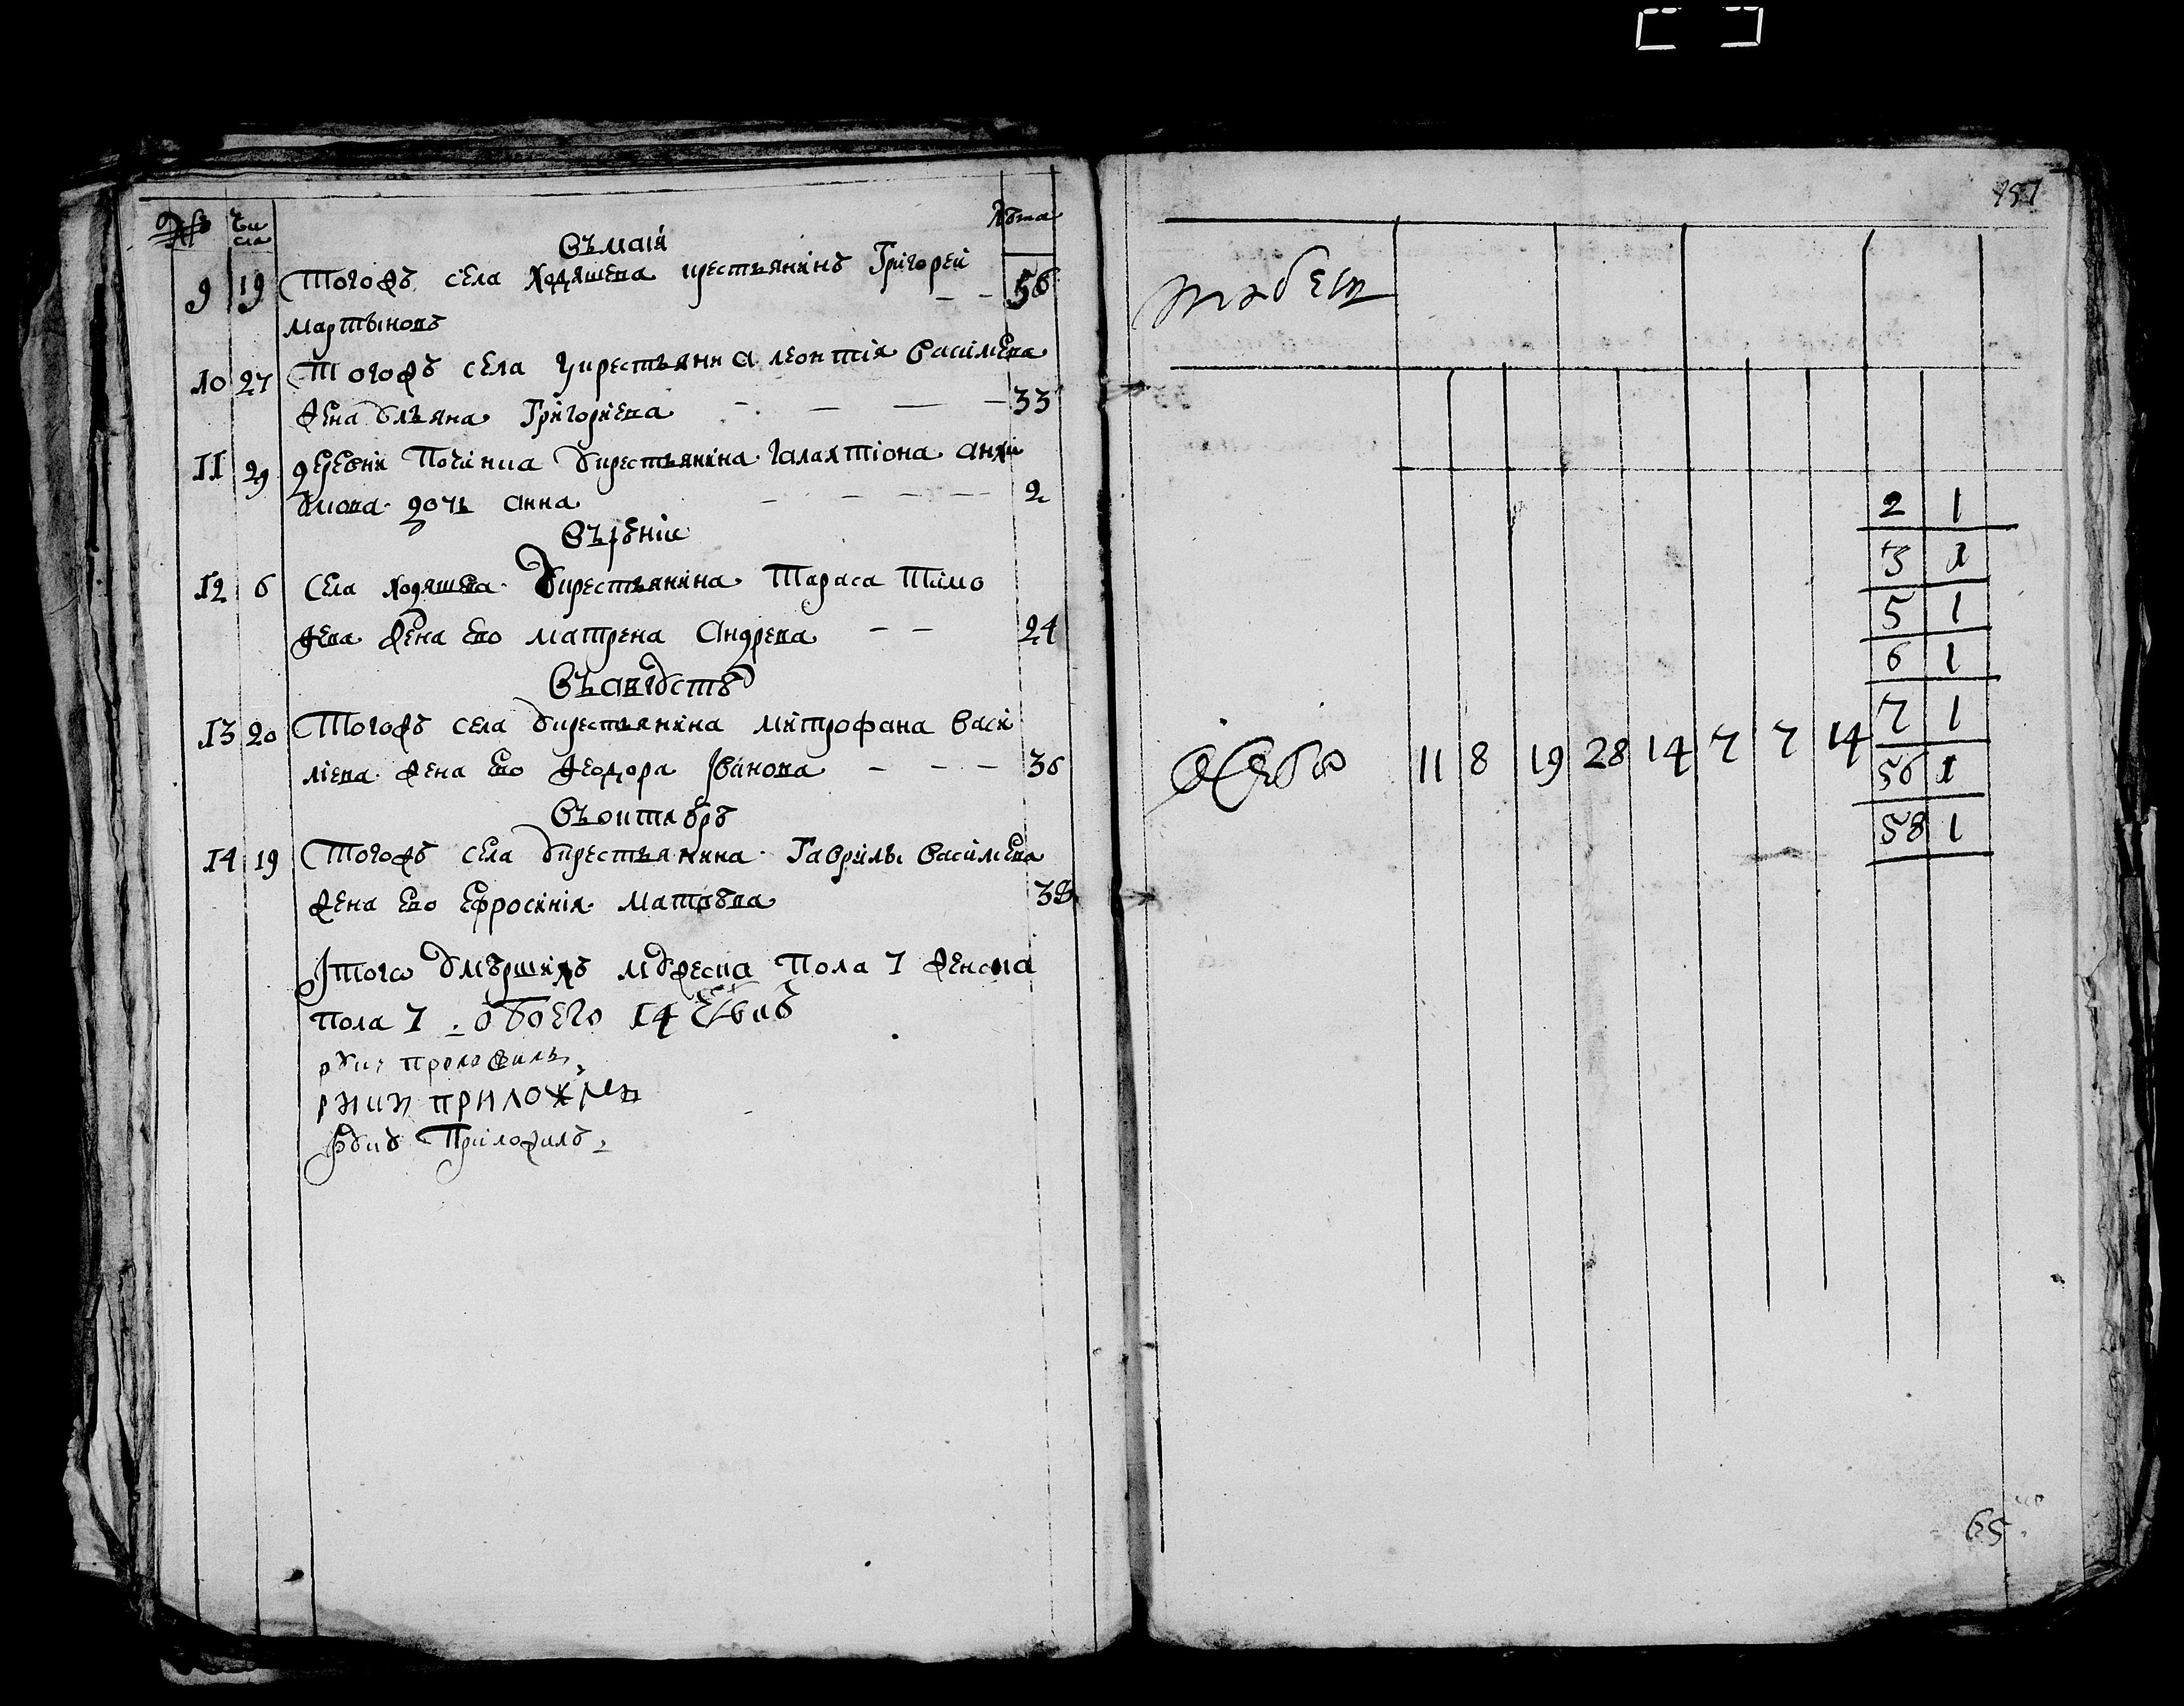 Чи Лѣта
сла
Въ маiи
9 19 Тогожъ села Ходяшева крестьянинъ Григорей 56
Мартыновъ
10 27 Тогожъ села у крестьянина Леонтiя Васильева
жена Ульяна Григорiева 33
11 29 деревни Починка у крестьянина Галактiона Анки
дочь Анна 2
Въ iюнiи
12 6 Села Ходяшева у крестьянина Тараса Тимо
феева жена ево Матрена Андреева 24
Въ августѣ
13 20 Тогожъ села у крестьянина Митрофана Васи
лiева жена ево Феодора Иванова 36
Въ октябрѣ
14 19 Тогожъ села у крестьянина Гаврилы Васильева
жена ево Ефросинiя Матвѣева 38
Итого умѣршихъ мужеска пола 7 женска
пола 7 обоего 14 человѣкъ
руку приложилъ
руку приложилъ
руку приложилъ
157
2 1
3 1
5 1
6 1
7 1
11 8 19 28 14 7 7 14
56 1
58 1
65